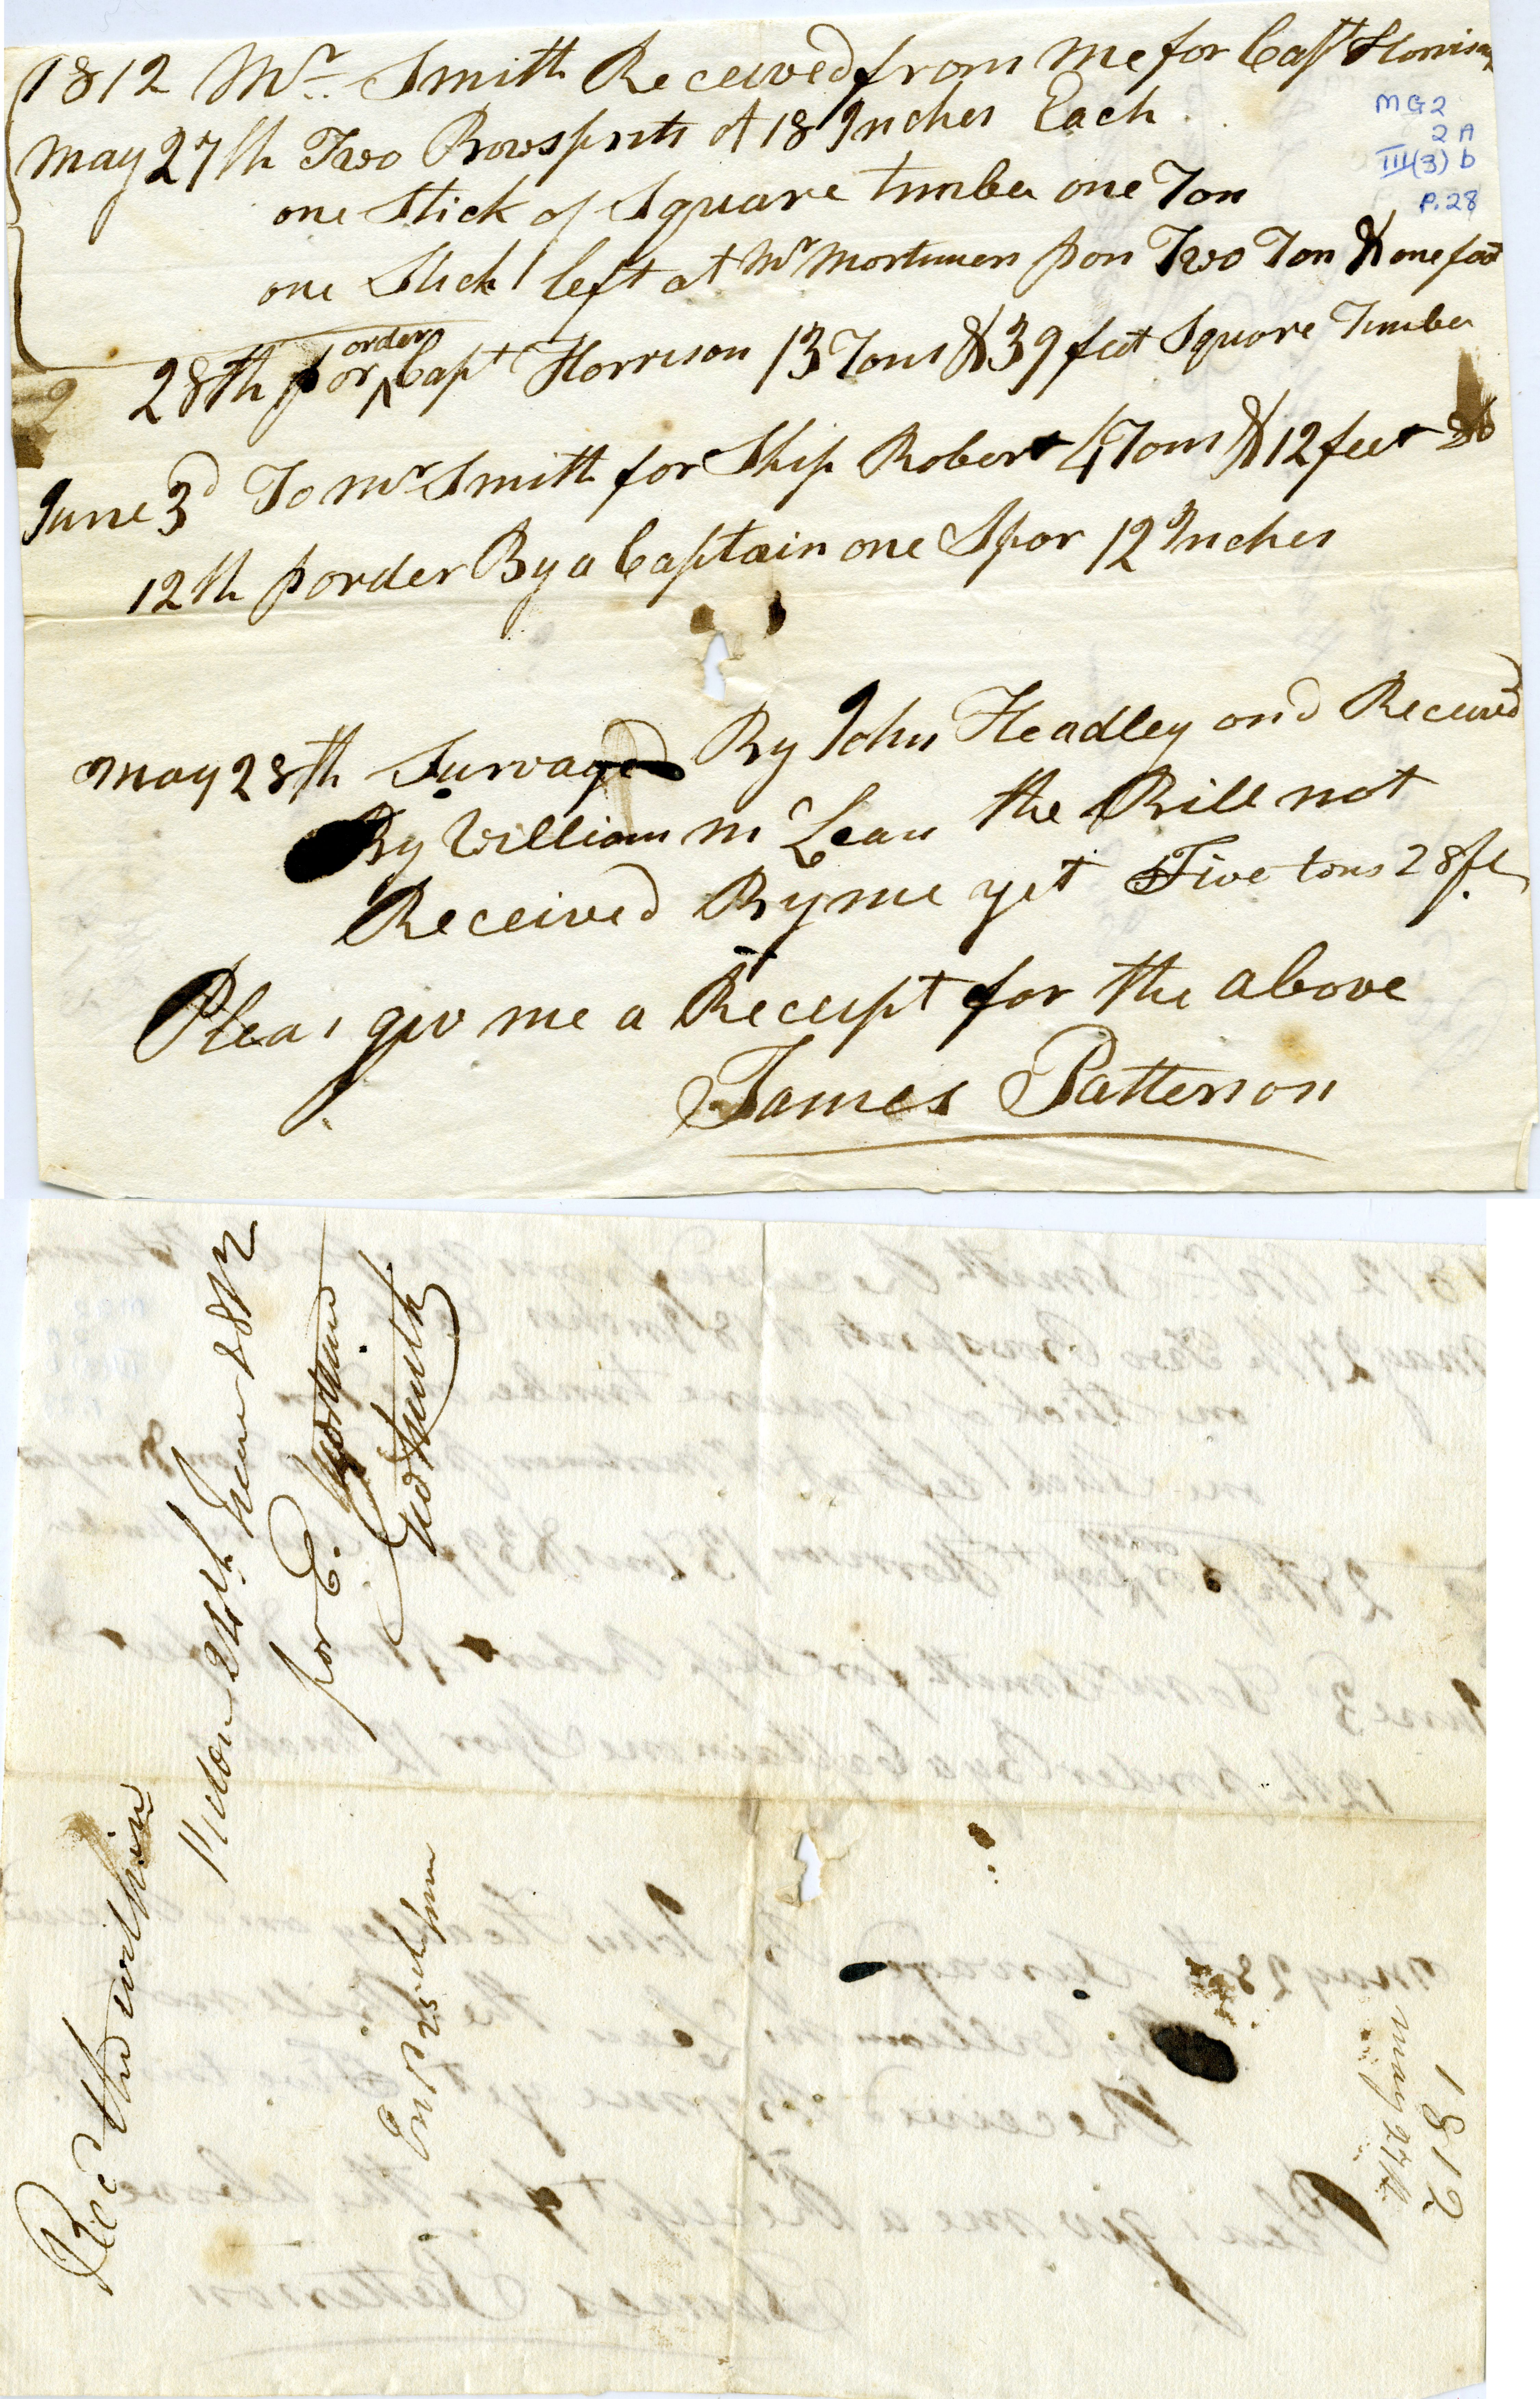 1812 Mr. Smith Received from me for Capt Horrison
May 27th Two Bowsprits of 18 Inches Each
one Stick of Square timber one Ton
one Stick left at Mr Mortimers pon Two Ton & one foot
28th p or order Capt Horrison 13 Tons & 39 feet Square Timber
June 3d To Mr Smith for Ship Robert 4 Tons & 12 feet Do
12th p order By a Captain one Spar 12 Inches
May 28th Survayed By John Headley and Received
By William Mc Lean the Bill not
Received By me yet Five tons 28 ft
Pleas giv me a Receipt for the above
James Patterson
MG2
2A
III(3)b
P.28
Recd the within
Pictou 24th June 1812
for E. Mortimer
Geo Smith
1812
May 27th